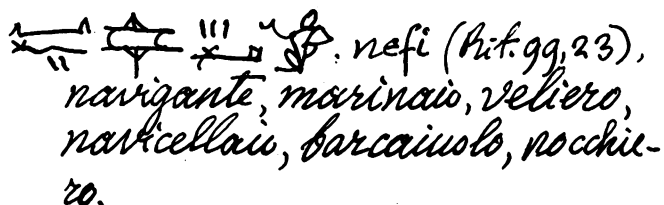 nefi (Rit. 99, 23),
navigante, marinaio, veliero,
navicellaio, barcaiuolo, nocchie-
ro.